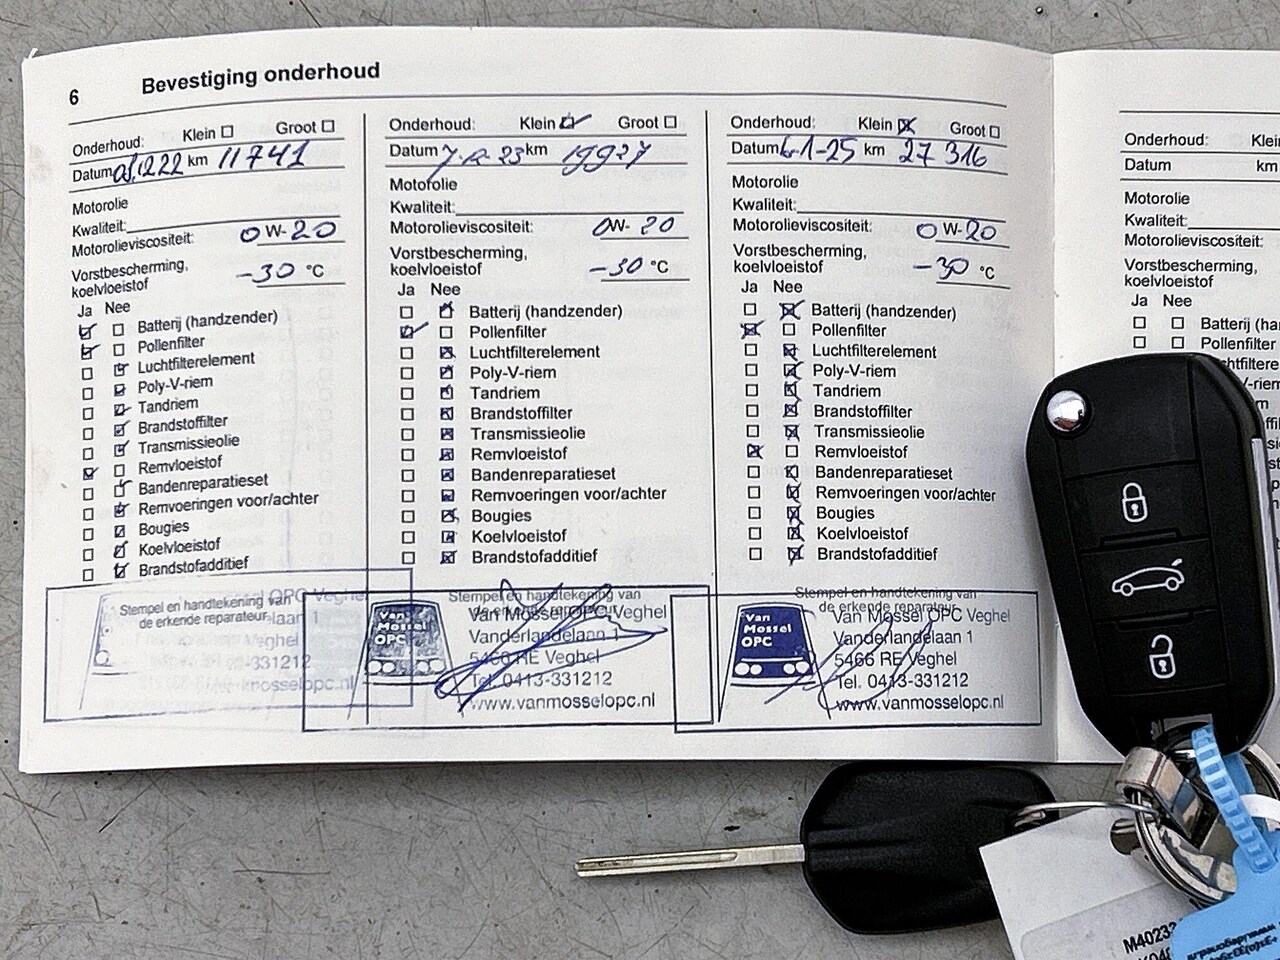 6 Bevestiging onderhoud
Onderhoud: Klein Groot
Datum km 11741
Motorolie
Kwaliteit:
Motorolieviscositeit: 0 W- 20
Vorstbescherming,
koelvloeistof -30 °C
Ja Nee
Batterij (handzender)
Pollenfilter
Luchtfilterelement
Poly-V-riem
Tandriem
Brandstoffilter
Transmissieolie
Remvloeistof
Bandenreparatieset
Remvoeringen voor/achter
Bougies
Koelvloeistof
Brandstofadditief
Stempel en handtekening van
de erkende reparateur
OPC Veghel
laan 1
Veghel
-331212
mosselopc.nl
Onderhoud: Klein Groot
Datum km 19927
Motorolie
Kwaliteit:
Motorolieviscositeit: 0W- 20
Vorstbescherming,
koelvloeistof -30 °C
Ja Nee
Batterij (handzender)
Pollenfilter
Luchtfilterelement
Poly-V-riem
Tandriem
Brandstoffilter
Transmissieolie
Remvloeistof
Bandenreparatieset
Remvoeringen voor/achter
Bougies
Koelvloeistof
Brandstofadditief
Stempel en handtekening van
de erkende reparateur
Van
Mossel
OPC
Van Mossel OPC Veghel
Vanderlandelaan 1
5466 RE Veghel
Tel. 0413-331212
www.vanmosselopc.nl
Onderhoud: Klein Groot
Datum 6-1-25 km 27 316
Motorolie
Kwaliteit:
Motorolieviscositeit: 0 W-20
Vorstbescherming,
koelvloeistof -30 °C
Ja Nee
Batterij (handzender)
Pollenfilter
Luchtfilterelement
Poly-V-riem
Tandriem
Brandstoffilter
Transmissieolie
Remvloeistof
Bandenreparatieset
Remvoeringen voor/achter
Bougies
Koelvloeistof
Brandstofadditief
Stempel en handtekening van
de erkende reparateur
Van
Mossel
OPC
Van Mossel OPC Veghel
Vanderlandelaan 1
5466 RE Veghel
Tel. 0413-331212
www.vanmosselopc.nl
Onderhoud: Klein
Datum km
Motorolie
Kwaliteit:
Motorolieviscositeit:
Vorstbescherming,
koelvloeistof
Ja Nee
Batterij (ha
Pollenfilter
M4023